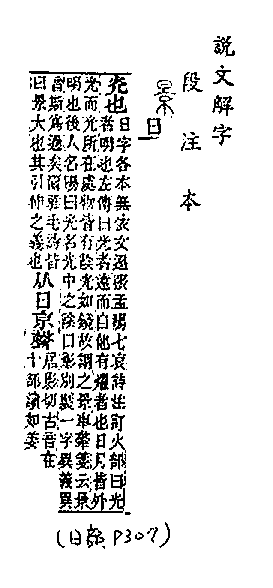 說文解字
段注本
景
光也日字各本無依文選張孟陽七哀詩注訂火部曰光
者明也左傳曰光者遠而自他有燿者也日月皆外
光而光所在處物皆有陰光如鏡故謂之景車舝箋云景
明也後人名陽曰光名光中之陰曰影別製一字異義異
音斯爲過矣爾雅毛詩皆
曰景大也其引伸之義也
从日京聲
居影切古音在
十部讀如姜
(日部 P307)